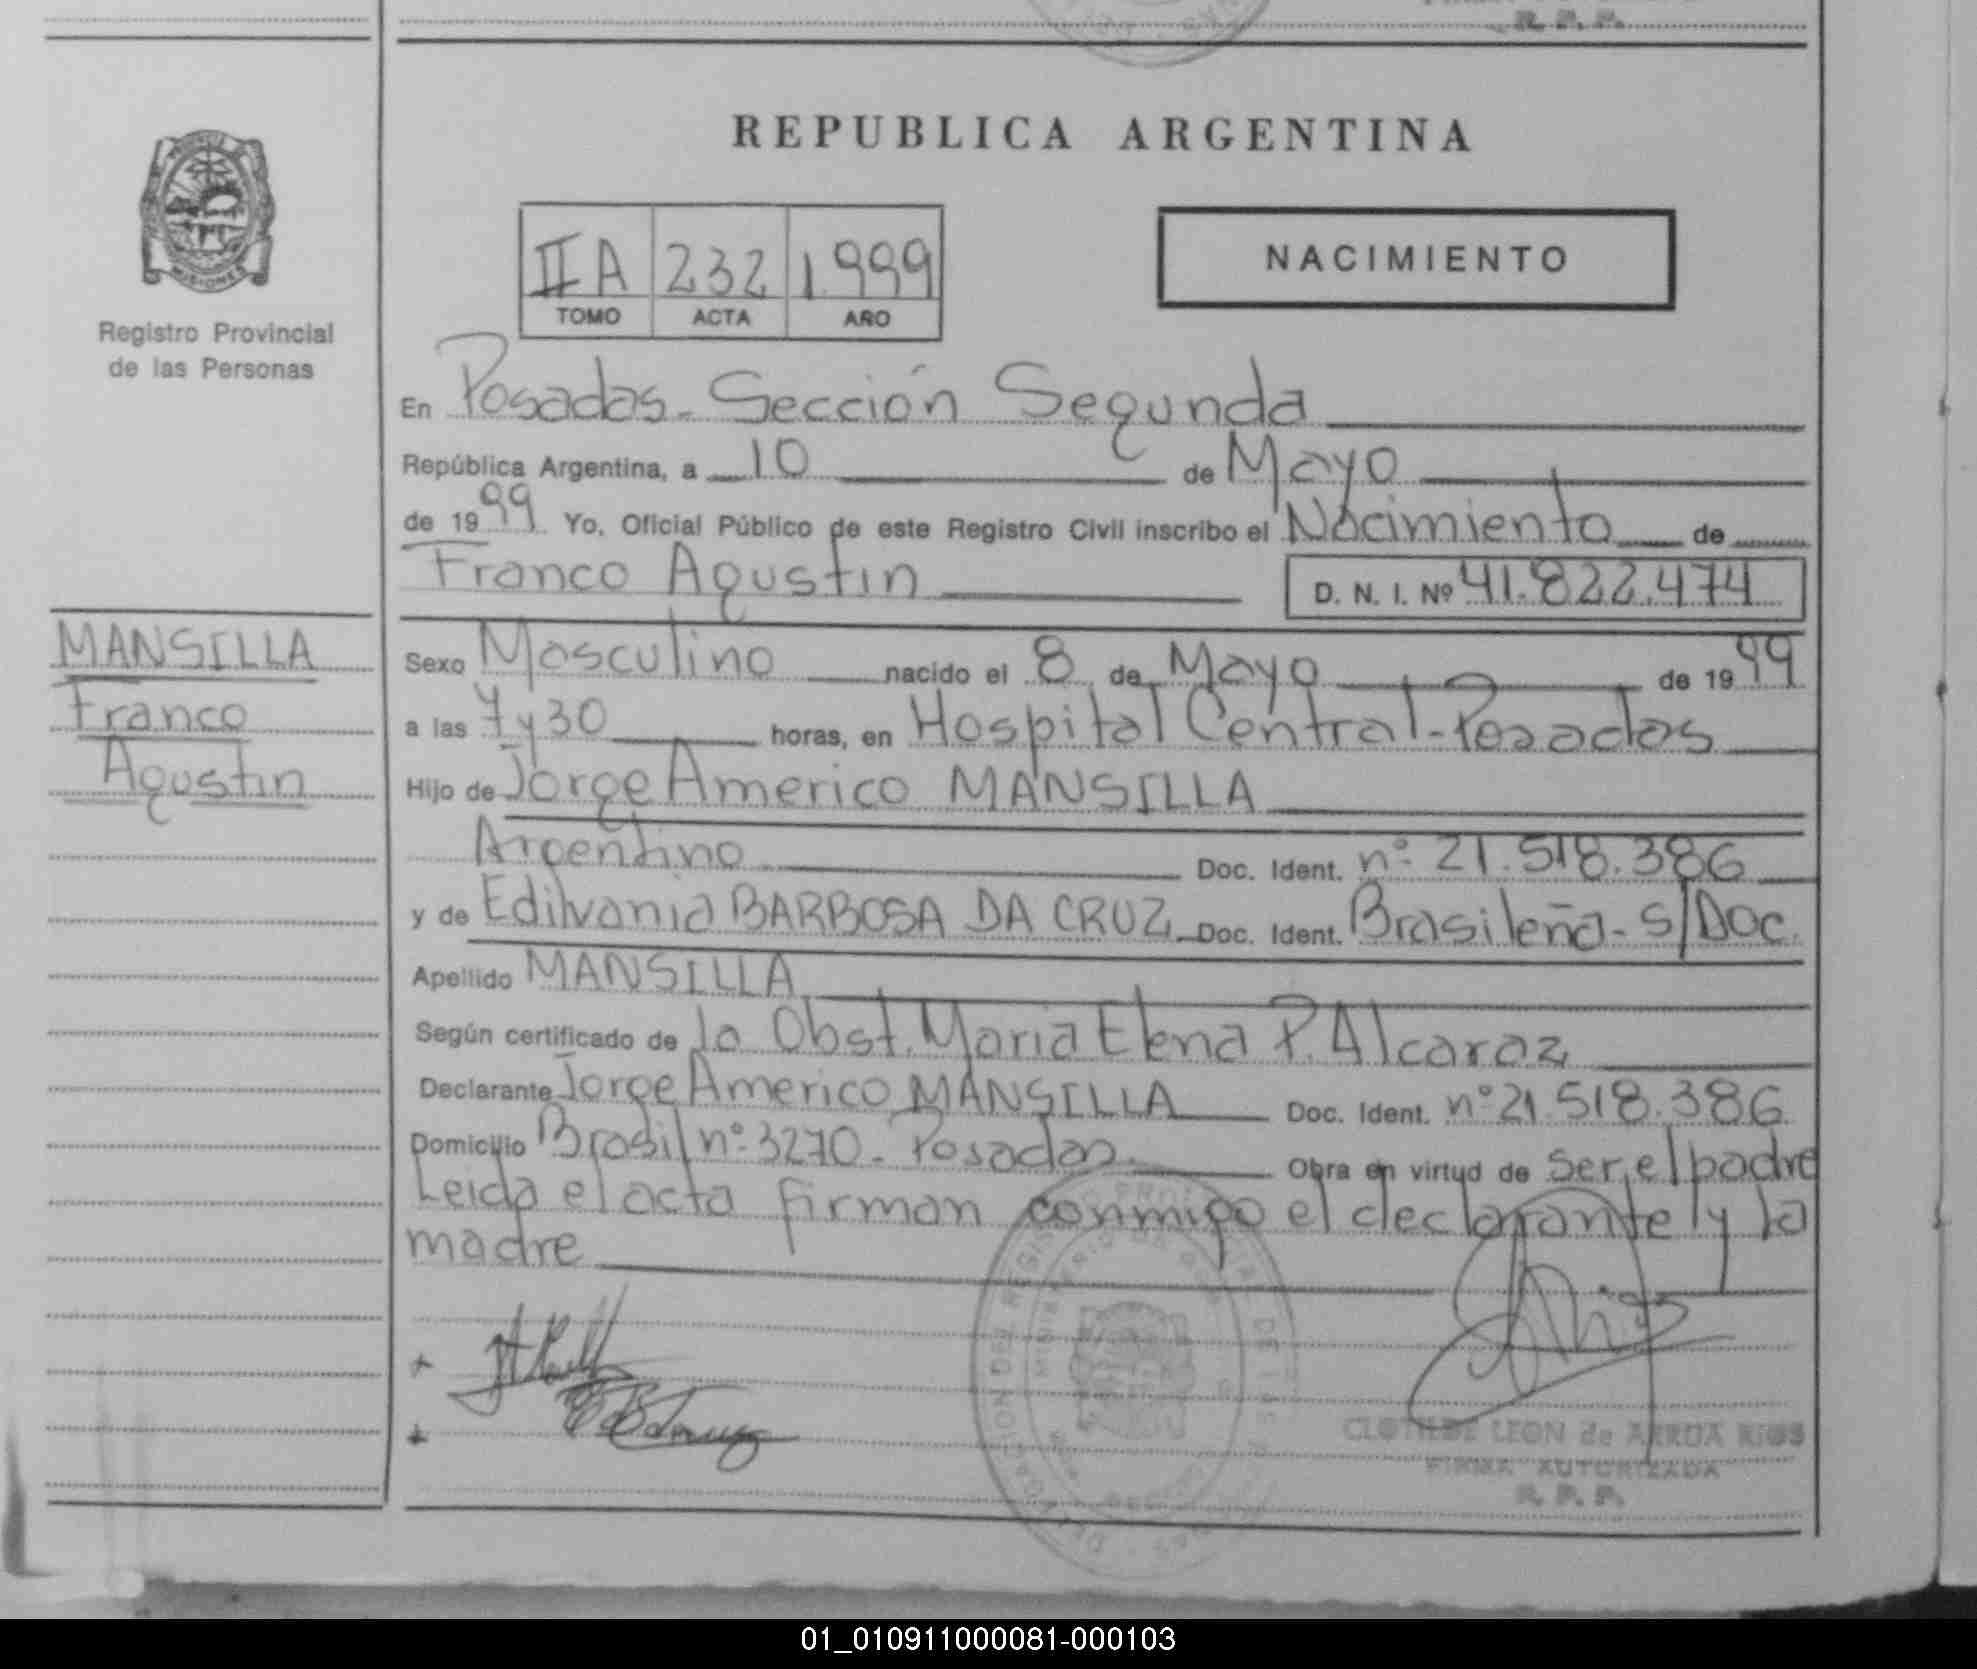 R. P. P.
REPUBLICA ARGENTINA
MISIONES
Registro Provincial
de las Personas
IIA 232 1.999
TOMO ACTA AÑO
NACIMIENTO
En Posadas - Sección Segunda
República Argentina, a 10 de Mayo
de 1999 Yo, Oficial Público de este Registro Civil inscribo el Nacimiento de
Franco Agustin D. N. I. Nº 41.822.474
MANSILLA
Franco
Agustin
Sexo Masculino nacido el 8 de Mayo de 1999
a las 7 y 30 horas, en Hospital Central - Posadas
Hijo de Jorge Americo MANSILLA
Argentino Doc. Ident. nº 21.518.386
y de Edilvania BARBOSA DA CRUZ Doc. Ident. Brasileña - S/Doc.
Apellido MANSILLA
Según certificado de la Obst. Maria Elena P. Alcaraz
Declarante Jorge Americo MANSILLA Doc. Ident. nº 21.518.386
Domicilio Brasil nº 3270 - Posadas Obra en virtud de ser el padre
Leida el acta firman conmigo el declarante y la
madre
CLOTILDE LEON de ARRUA RIOS
FIRMA AUTORIZADA
R. P. P.
01_010911000081-000103